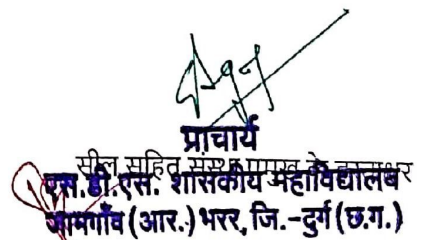 प्राचार्य
सील सहित संस्था प्रमुख के हस्ताक्षर
एम.डी.एस. शासकीय महाविद्यालय
जामगाँव (आर.) भरर, जि.-दुर्ग (छ.ग.)